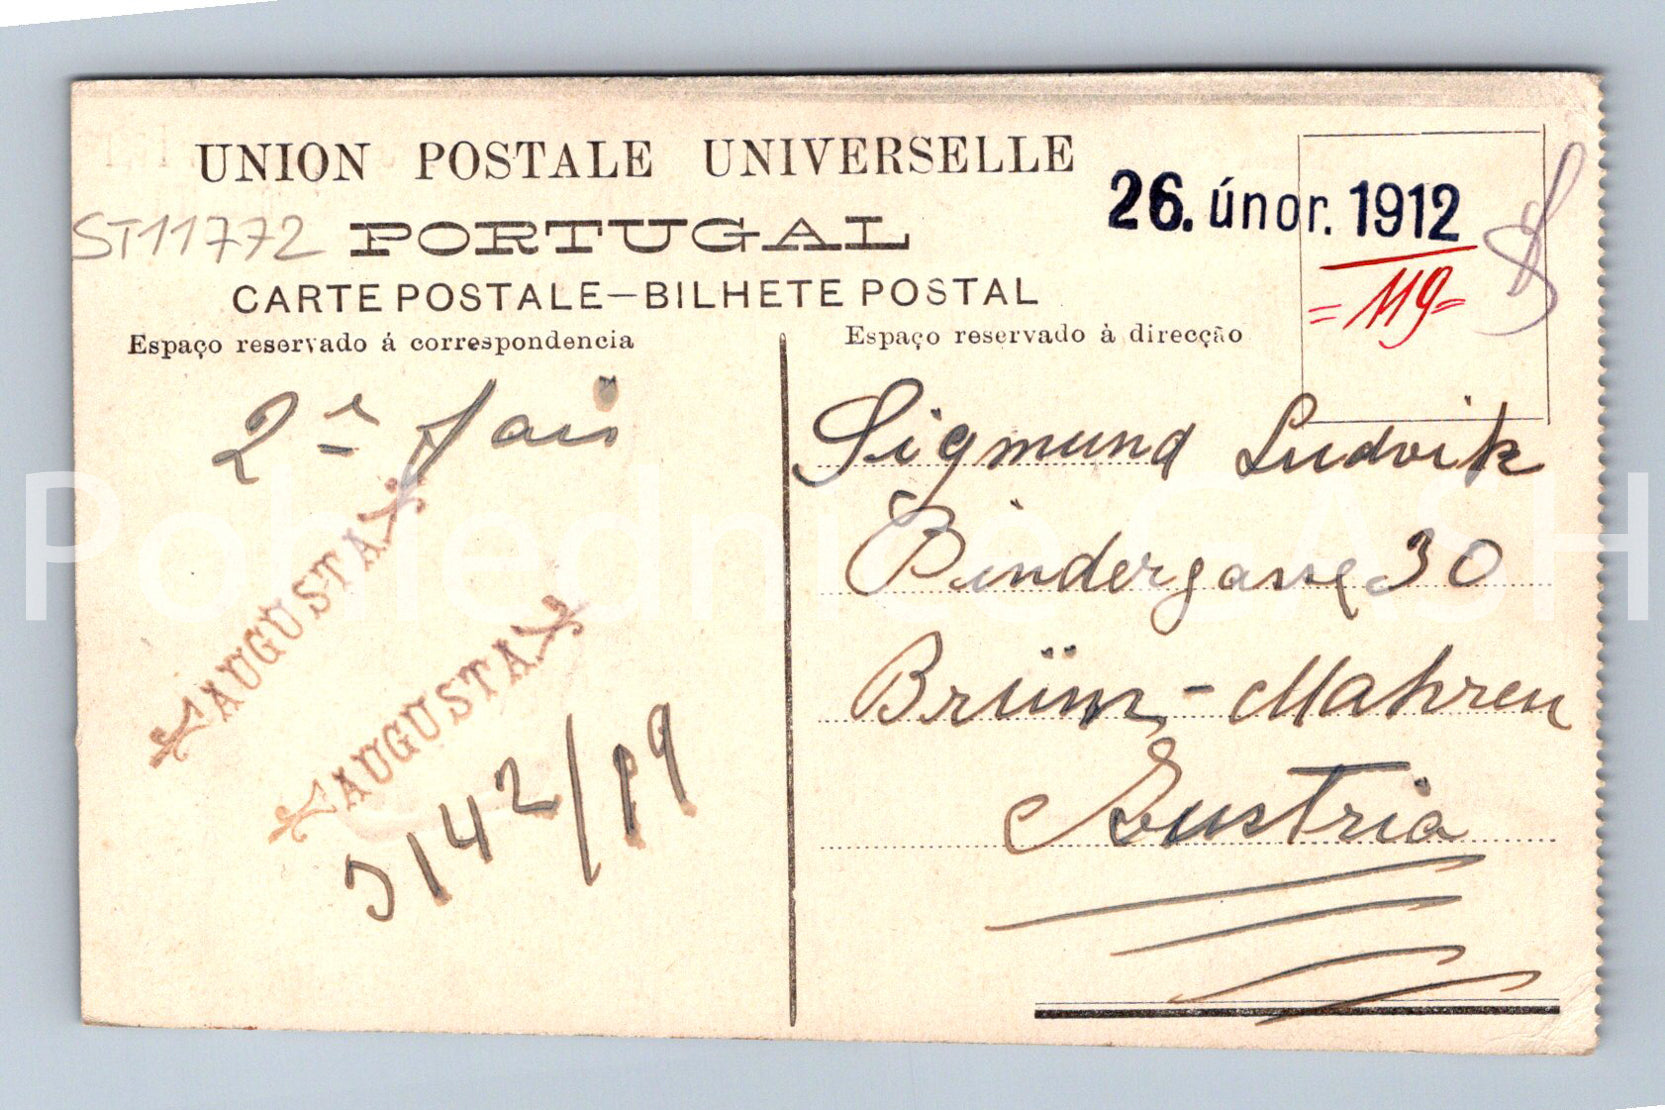 UNION POSTALE UNIVERSELLE
26. únor. 1912
ST11772 PORTUGAL
= 119 =
CARTE POSTALE-BILHETE POSTAL
Espaço reservado á correspondencia
Espaço reservado à direcção
2è fais
Sigmund Ludvik
Pohlednice GASH
Bindergasse 30
AUGUSTA
AUGUSTA
Brünn - Mahren
142/
Austria